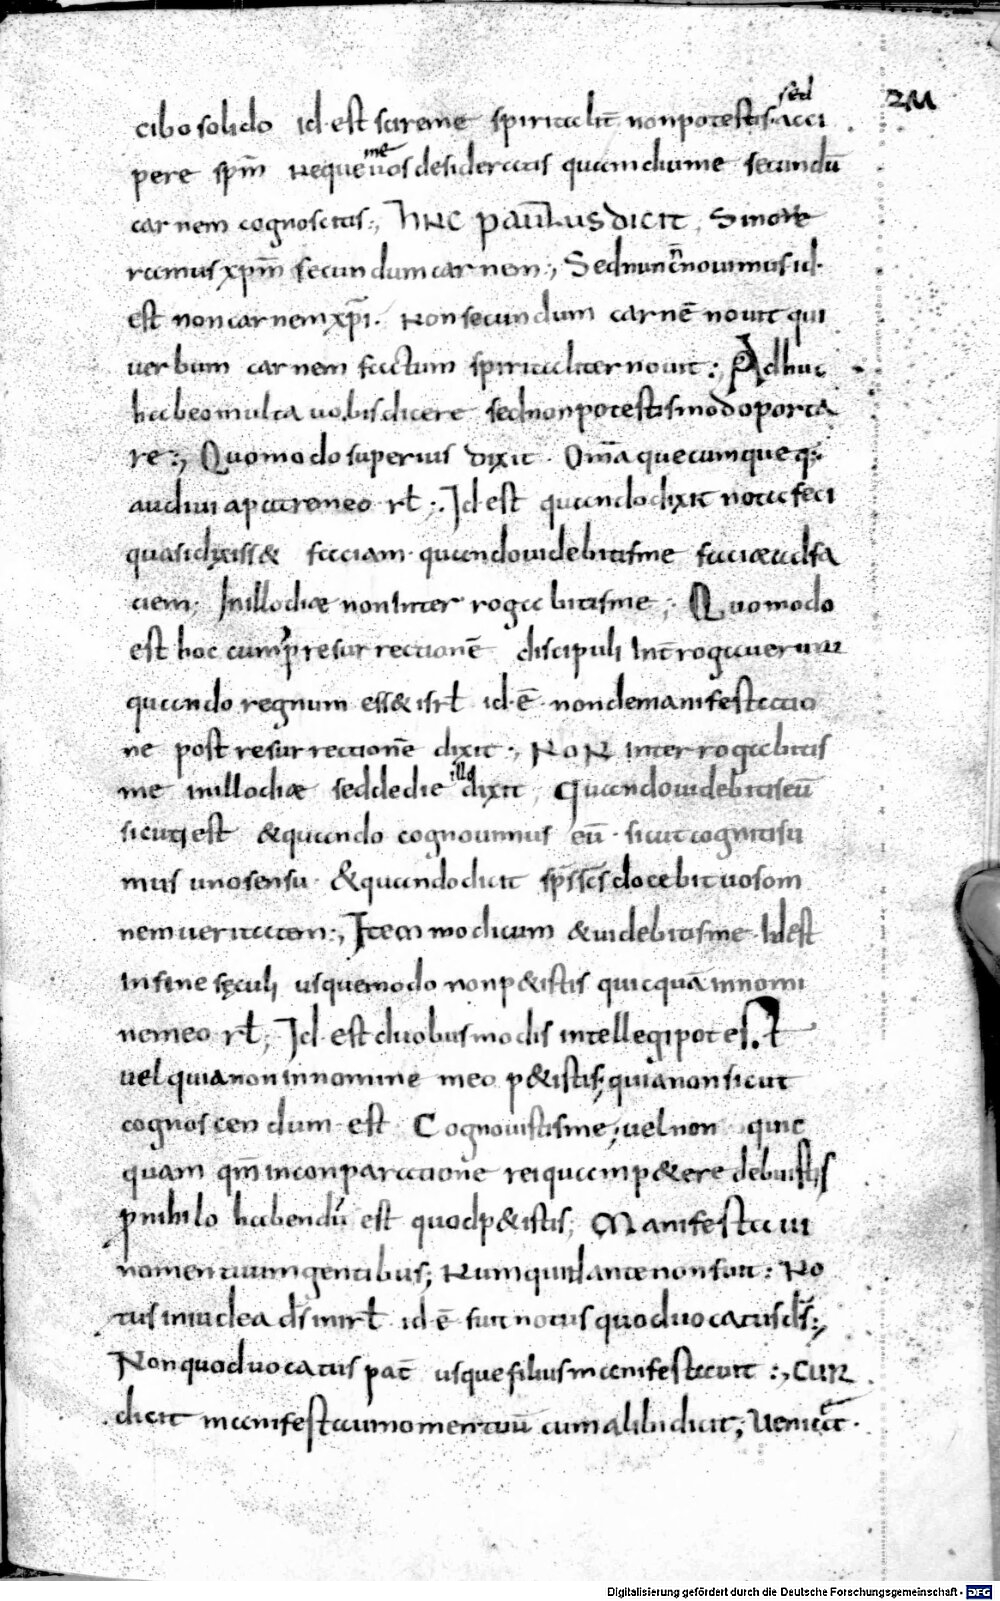 sed
cibo solido id·est scire me spiritalit̄ non potestis· acci
me
pere sp̄m neque uos desideratis quamdiu me secundū
carnem cognoscitis:, hec paulus dicit, Si noue
ramus xp̄m secundum carnem:, Sed nunc n̄ nouimus id·
est non carnem xp̄i. Non secundum carnē nouit qui
uerbum carnem factum spiritaliter nouit:, Adhuc
habeo multa uobis dicere sed non potestis modo porta
re:, Quomodo superius dixit. Om̄a quecumque
audiui a patre meo rł:. Id·est quando dixit nota feci
quasi dixiss& faciam· quando uidebitis me faciæ ad fa
ciem; In illo diæ non interrogabitis me; Quomodo
est hoc cum p̱ resurrectionē discipuli int̄rogauerunt
quando regnum ess& isrł id·ē· non de manifestatio
ne post resurrectionē dixit:, Non interrogabitis
illo
me in illo diæ sed de die dixit, Quando uidebitis eū
sicuti est & quando cognouimus eū· sicut cogniti su
mus uno sensu· & quando dicit sp̄s sc̄s docebit uos om
nem ueritatem:, Item modicum & uidebitis me· Id est
in fine sęculi usque modo non p&istis quicquā in nomi
ne meo rł; Id·est duobus modis intellegi potest
uel quia non in nomine meo p&istis; quia non sicut
cognoscendum est Cognouistis me; uel non quic
quam qm̄ in conparatione rei quam p&ere debuistis
p̱ nihilo habendū est quod p&istis; Manifestaui
nomen tuum gentibus; Numquid ante non fuit: No
tus in iudea d̄s in isrł id·ē· fuit notus quod uocatus d̄s:,
Non quod uocatus pat̄ usque filius manifestauit:, Cur
dicit manifestaui nomen tuū cum alibi dicit; Veniat·
Digitalisierung gefördert durch die Deutsche Forschungsgemeinschaft - DFG